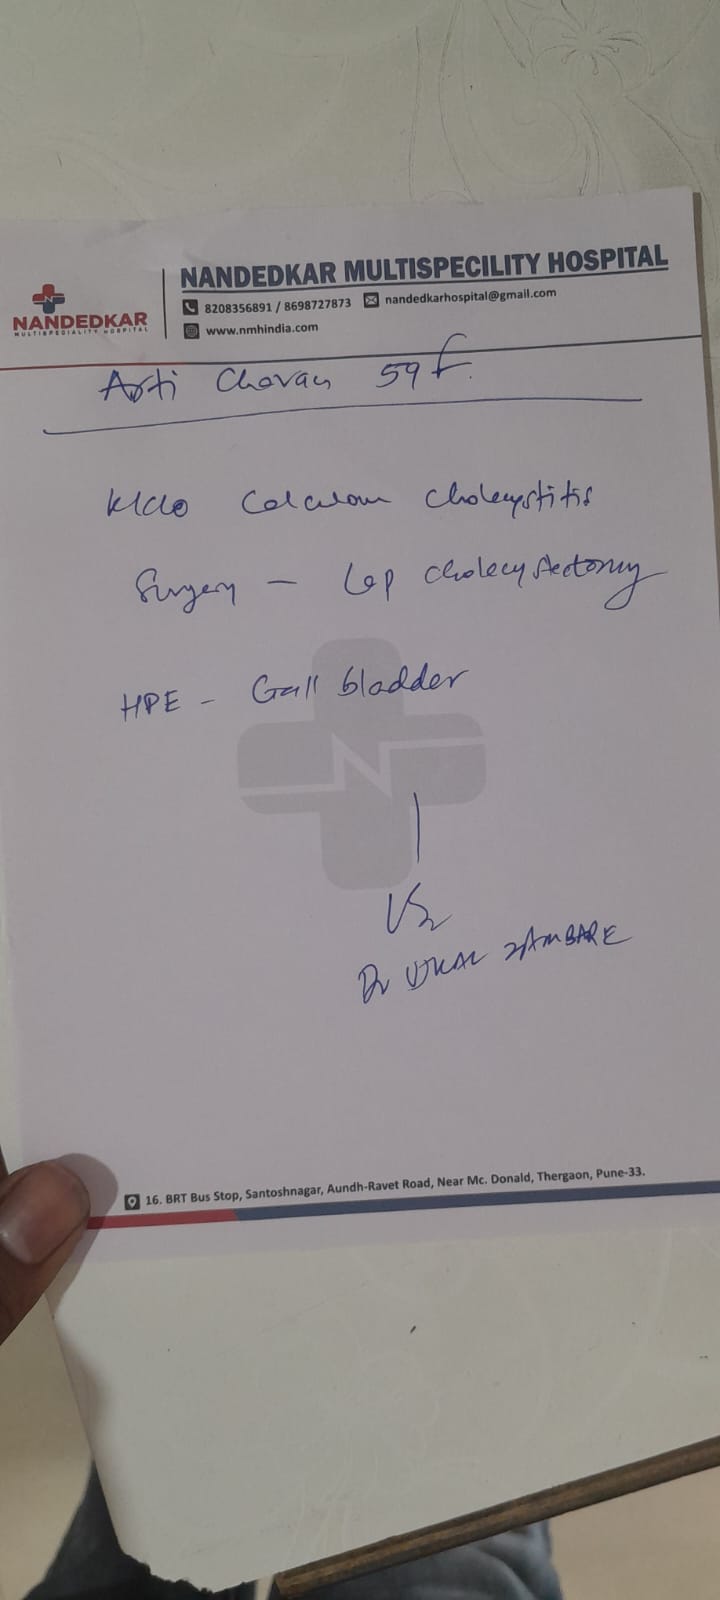 NANDEDKAR
MULTISPECIALITY HOSPITAL
NANDEDKAR MULTISPECILITY HOSPITAL
8208356891 / 8698727873 nandedkarhospital@gmail.com
www.nmhindia.com
Arti Chavan 59 F.
K/c/o Calculous Cholecystitis
Surgery - Lap cholecystectomy
HPE - Gall bladder
Dr ZAMBARE
16. BRT Bus Stop, Santoshnagar, Aundh-Ravet Road, Near Mc. Donald, Thergaon, Pune-33.